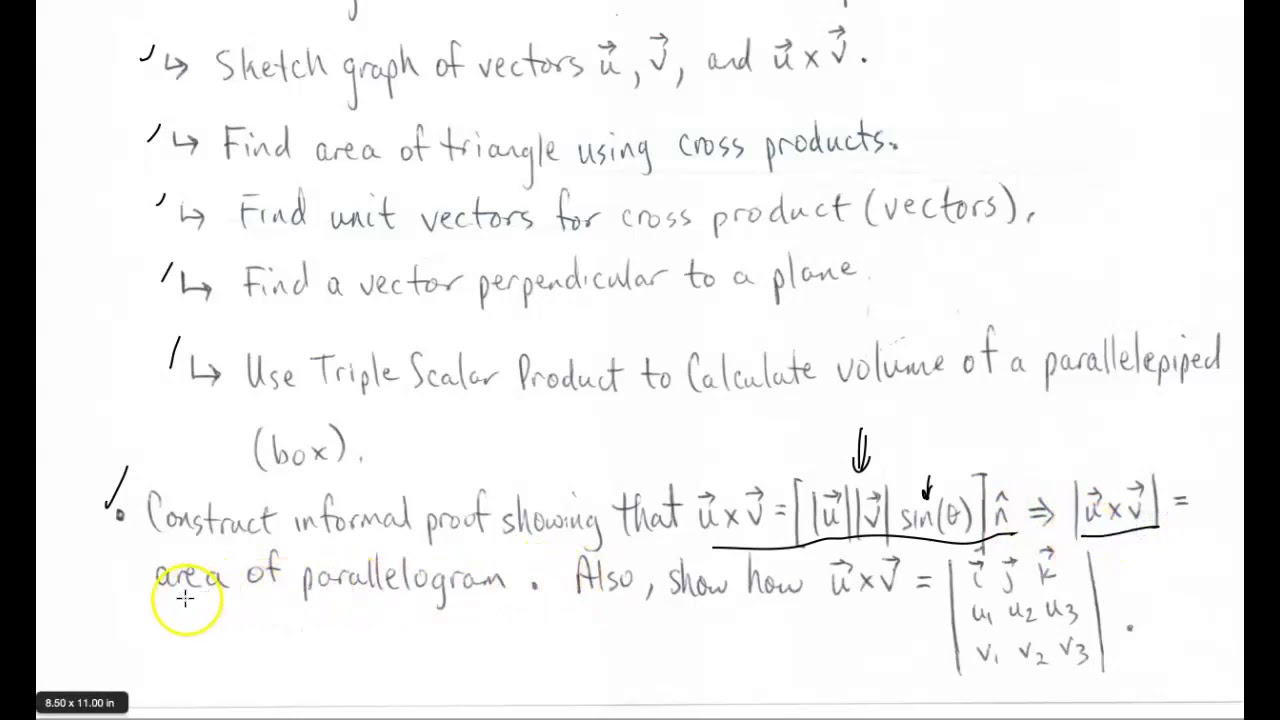 ↳ Sketch graph of vectors u⃗, v⃗, and u⃗ x v⃗.
↳ Find area of triangle using cross products.
↳ Find unit vectors for cross product (vectors).
↳ Find a vector perpendicular to a plane.
↳ Use Triple Scalar Product to Calculate volume of a parallelepiped
(box).
• Construct informal proof showing that u⃗ x v⃗ = [|u⃗||v⃗| sin(θ)] n̂ ⇒ |u⃗ x v⃗| =
area of parallelogram. Also, show how u⃗ x v⃗ = | i⃗ j⃗ k⃗
u₁ u₂ u₃
v₁ v₂ v₃ | .
8.50 x 11.00 in